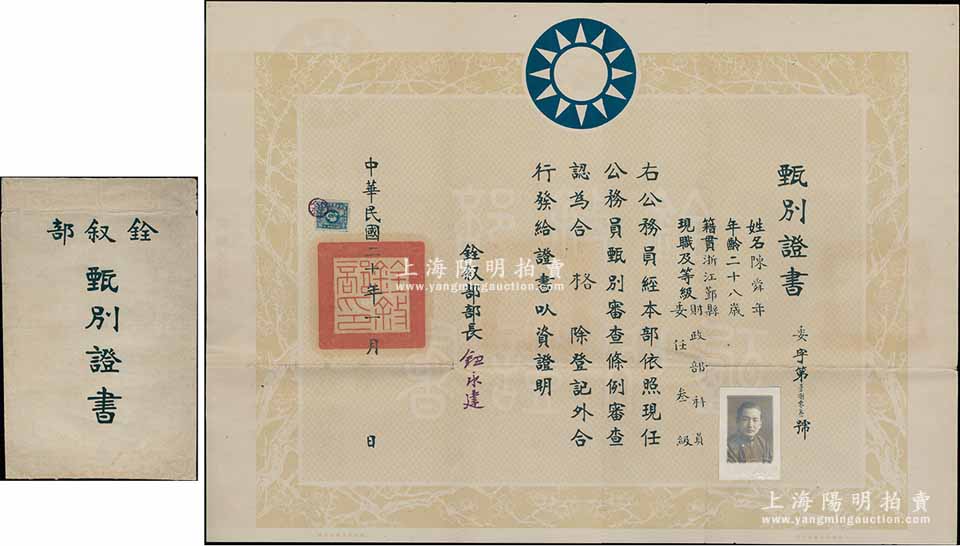 銓敘部
甄別證書
甄別證書
委字第號
姓名陳舜年
年齡二十八歲
籍貫浙江鄞縣
現職及等級財政部科員
委任叁級
右公務員經本部依照現任
公務員甄別審查條例審查
認為合格除登記外合
行發給證書以資證明
銓敘部部長鈕永建
中華民國二十年一月日
上海陽明拍賣
www.yangmingauction.com
上海陽明拍賣
www.yangmingauction.com